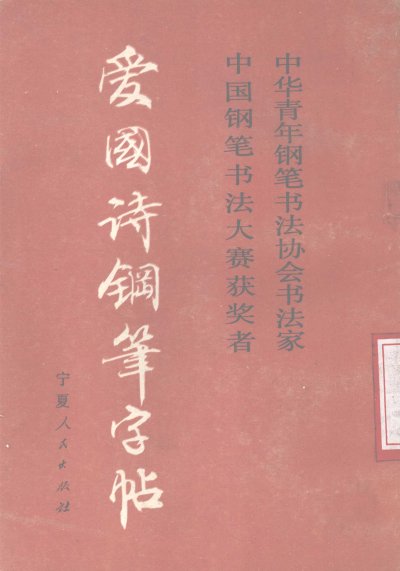 中华青年钢笔书法协会书法家
中国钢笔书法大赛获奖者
爱國诗鋼筆字帖
宁夏人民出版社